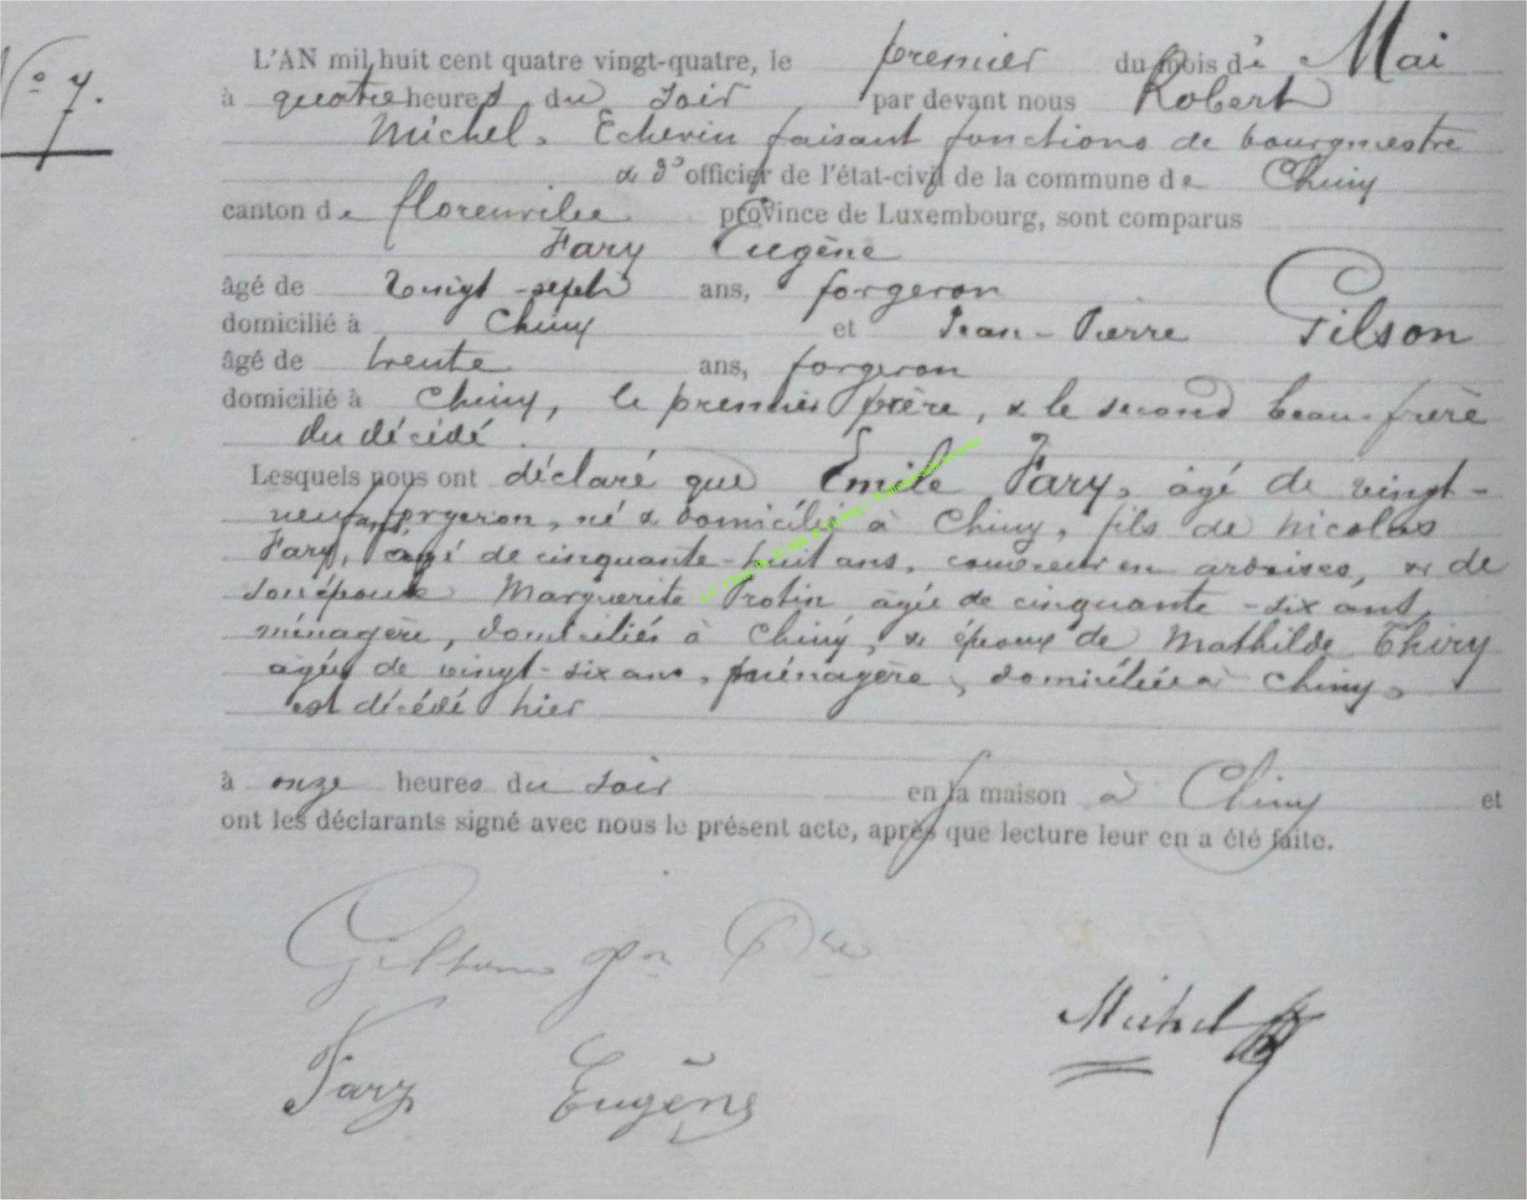 N° 7.
L'AN mil huit cent quatre vingt-quatre, le premier du mois de Mai
à quatre heures du soir par devant nous Robert
Michel, Echevin faisant fonctions de bourgmestre
& d' officier de l'état-civil de la commune de Chiny
canton de florenville province de Luxembourg, sont comparus
Fary Eugène
âgé de vingt-sept ans, forgeron
domicilié à Chiny et Jean-Pierre Gilson
âgé de trente ans, forgeron
domicilié à Chiny, le premier frère, & le second beau-frère
du décédé.
Lesquels nous ont déclaré que Emile Fary, âgé de vingt-
neuf ans, forgeron, né & domicilié à Chiny, fils de Nicolas
Fary, âgé de cinquante-huit ans, couvreur en ardoises, & de
son épouse Marguerite Protin âgée de cinquante-six ans,
ménagère, domiciliés à Chiny, & époux de Mathilde Thiry
âgée de vingt-six ans, ménagère, domiciliée à Chiny,
est décédé hier
à onze heures du soir en sa maison à Chiny et
ont les déclarants signé avec nous le présent acte, après que lecture leur en a été faite.
Gilson Jn Pre
Michel
Fary Eugène